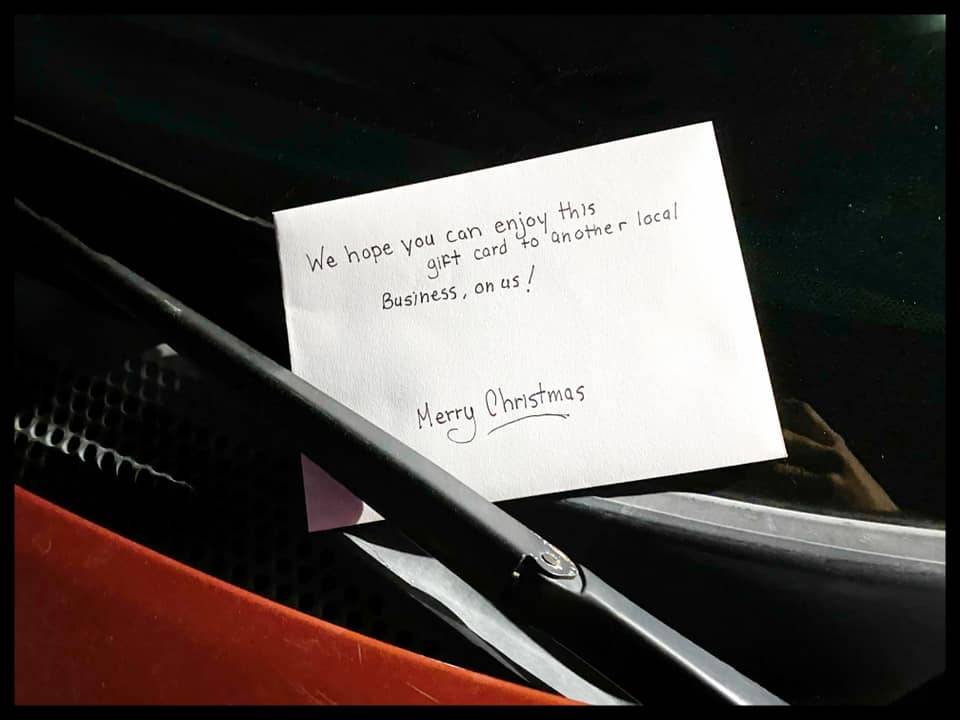 We hope you can enjoy this
gift card to another local
Business, on us!
Merry Christmas